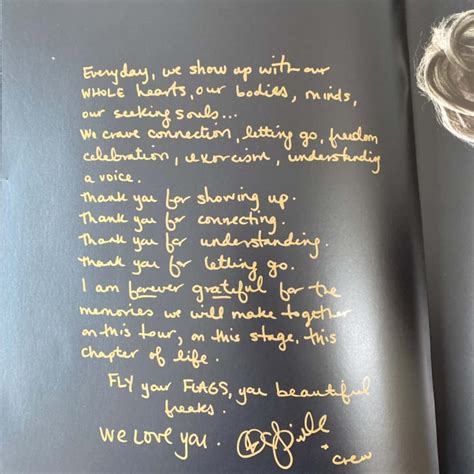 Everyday, we show up with our
WHOLE hearts, our bodies, minds,
our seeking souls...
We crave connection, letting go, freedom
celebration, exorcism, understanding
a voice.
Thank you for showing up.
Thank you for connecting.
Thank you for understanding.
Thank you for letting go.
I am forever grateful for the
memories we will make together
on this tour, on this stage, this
chapter of life.
FLY your FLAGS, you beautiful
freaks.
We Love you.
+ crew